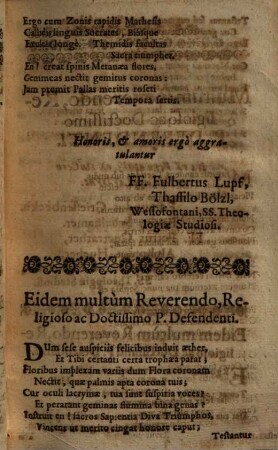 Ergo cum Zonis rapidis Mathesis
Callidis linguis Socrates, Biasque
Exulet longè. Themidis facultas
Sacra triumphet.
En! creat spinis Metanæa flores,
Gemmeas nectit gemitus coronas:
Jam promis Pallas meritis roseti
Tempora sertis.
Honoris, & amoris ergò aggra-
tulantur
FF. Fulbertus Lupf,
Thassilo Bölzl,
Wessofontani, SS. Theo-
logiæ Studiosi.
Eidem multùm Reverendo, Re-
ligioso ac Doctissimo P. Defendenti.
DUm sese auspiciis felicibus induit æther,
Et Tibi certanti certa trophæa parat;
Floribus implexam variis dum Flora coronam
Nectit, quæ palmis apta corona tuis;
Cur oculi lacrymæ, tua sunt suspiria voces?
Et perarant geminas flumina bina genas?
Instruit en! sacros Sapientia Diva Triumphos,
Vincens ut merito cingat honore caput;
Testantur